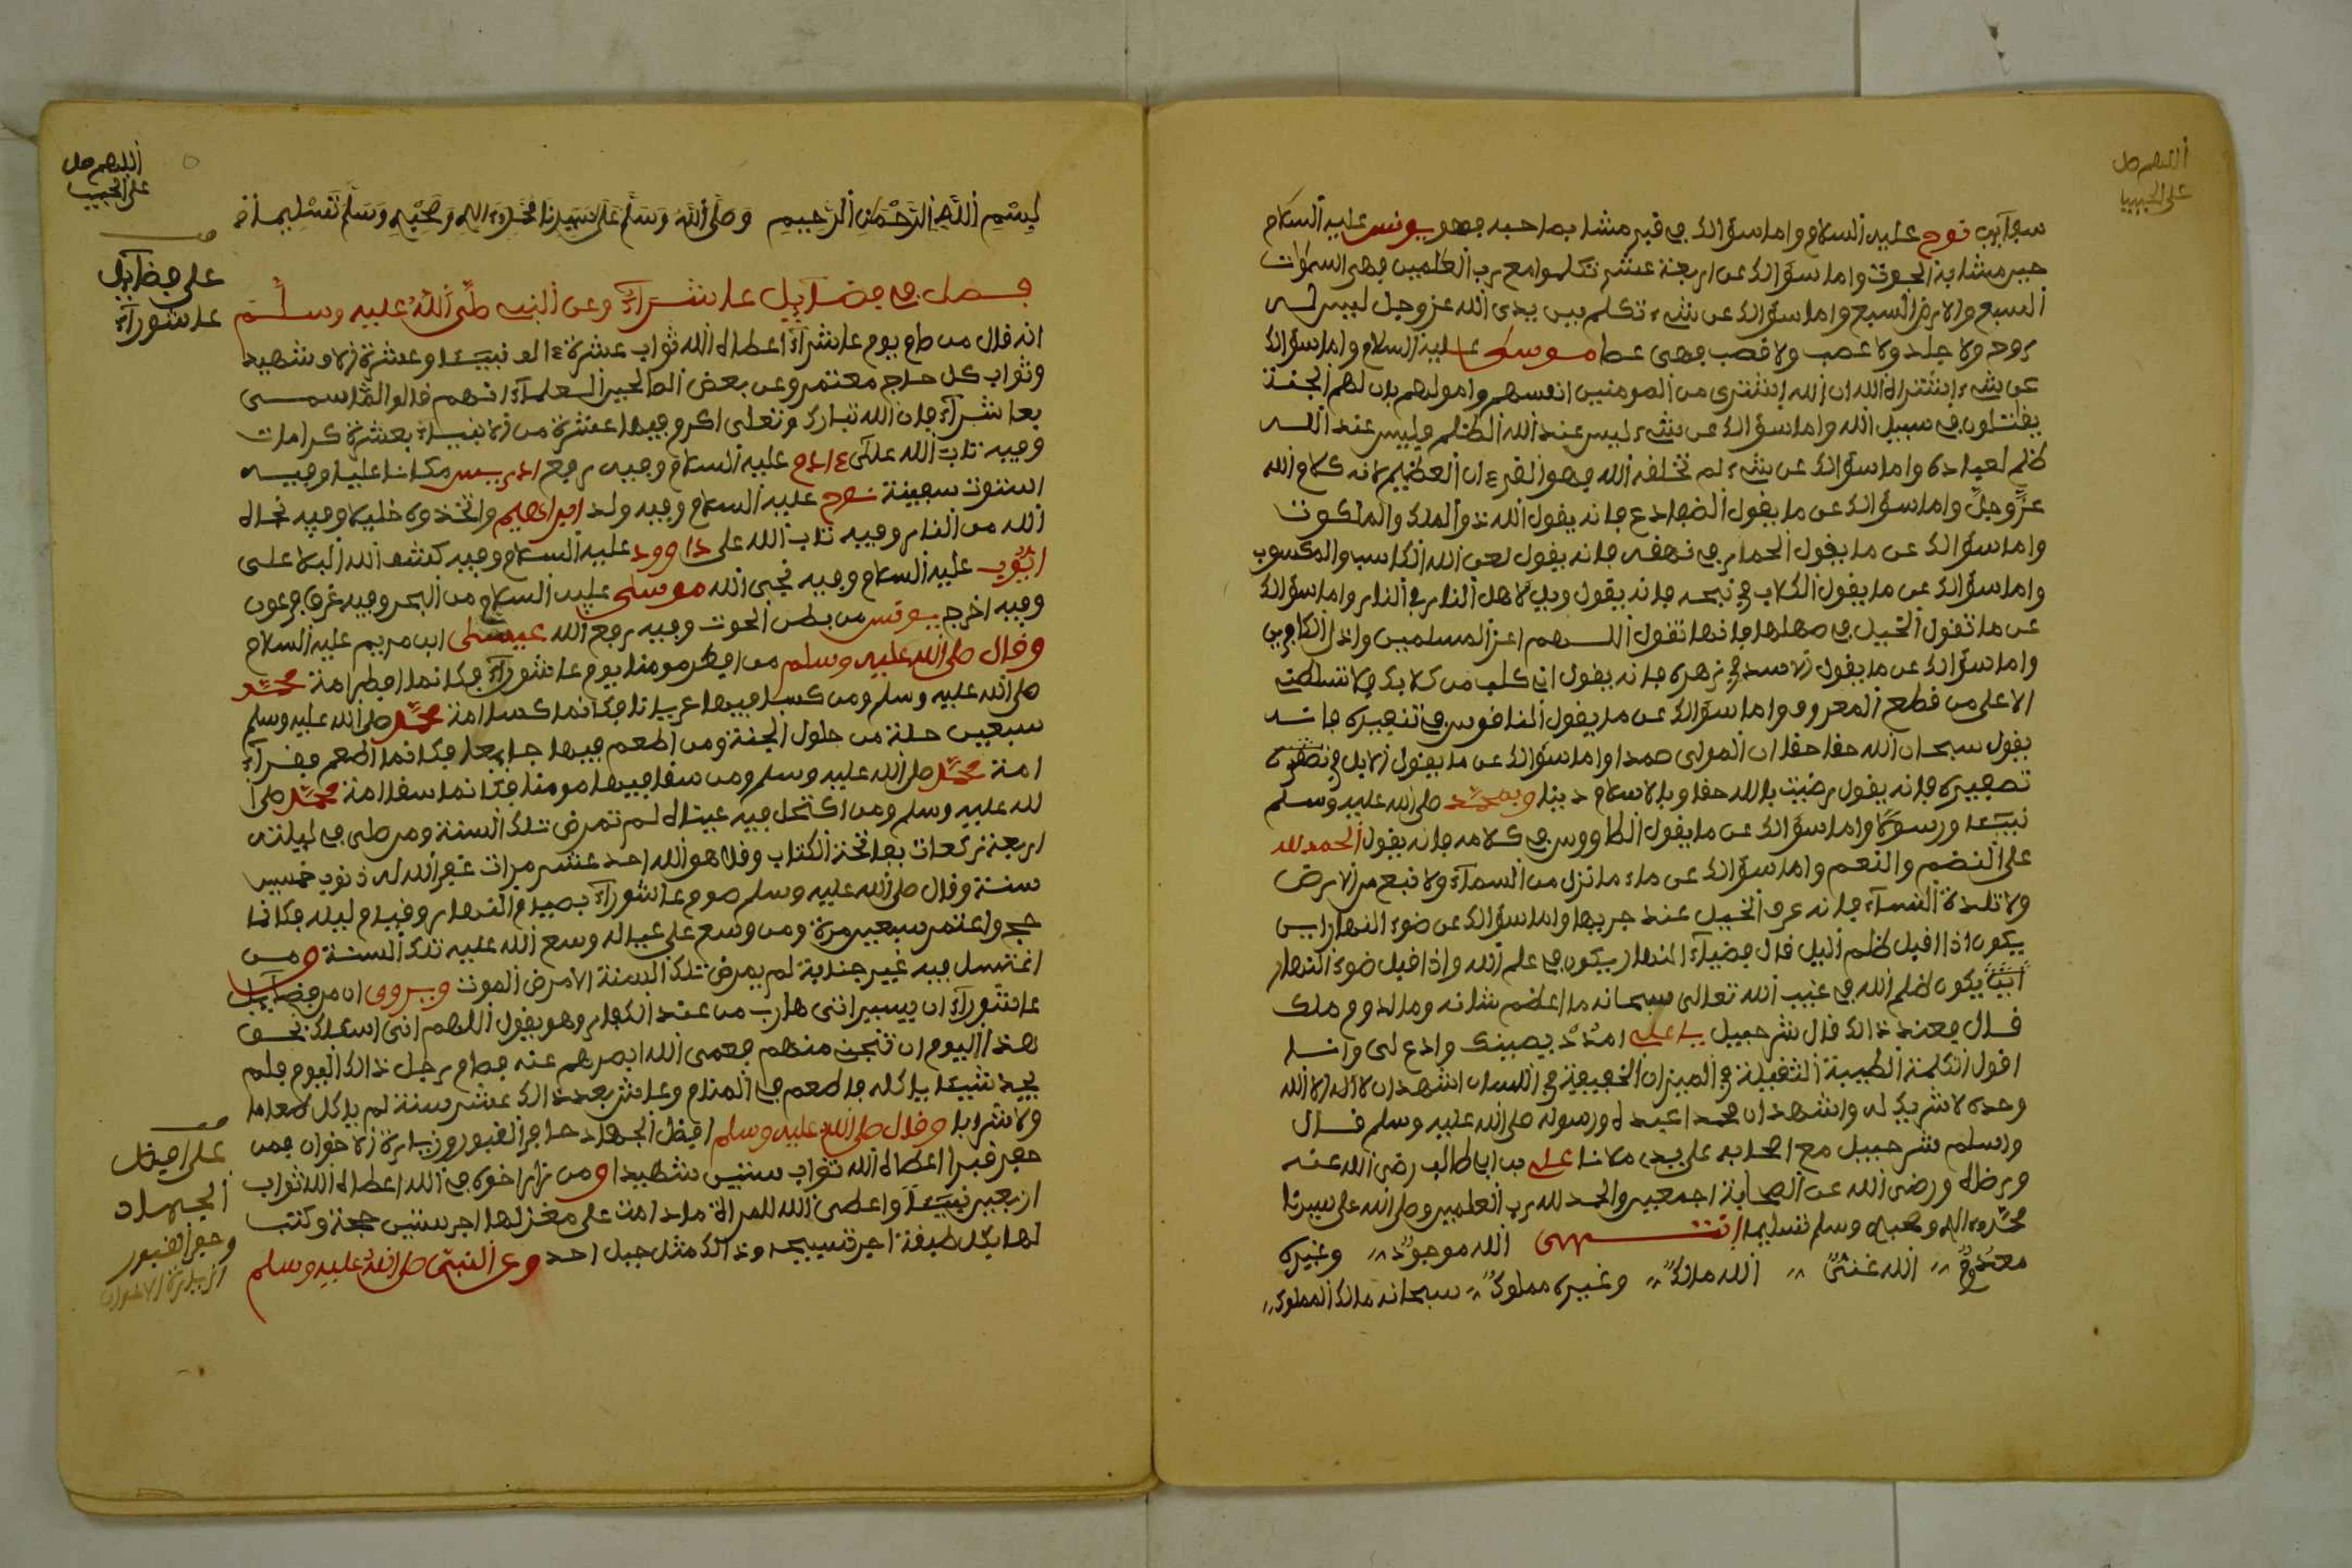 اللهم صل
على الحبيب
سجاين نوح عليه السلام واما سؤالك عن قبر مشا بصاحبه فهو يونس عليه السلام
حين مشا به الحوت واما سؤالك عن اربعة عشر تكلموا مع رب العلمين فهى السموات
السبع والارض السبع واما سؤالك عن شىء تكلم بين يدى الله عز وجل ليس له
روح ولا جلد ولا عصب ولا قصب فهى عصا موسى عليه السلام واما سؤالك
عن شىء اشتراه الله ان الله اشترى من المومنين انفسهم واموالهم بان لهم الجنة
يقاتلون في سبيل الله واما سؤالك عن شىء ليس عند الله الظلم فليس عند الله
ظلم لعباده واما سؤالك عن شىء لم تخلفه الله فهو القرءان العظيم لانه كلام الله
عز وجل واما سؤالك عن ما يقول الضفادع فانه يقول الله ذو الملك والملكوت
واما سؤالك عن ما يقول الحمار في نهقه فانه يقول لعن الله الكاسب والمكسوب
واما سؤالك عن ما يقول الكلاب في نبحه فانه يقول ويل لاهل النار في النار واما سؤالك
عن ما تقول الخيل في صهلها فانها تقول اللهم اعز المسلمين واذل الكافرين
واما سؤالك عن ما يقول الاسد في زهره فانه يقول انى كلب من كلابك فلا تسلطنى
الا على من قطع المعروف واما سؤالك عن ما يقول الناقوس في تنقيره فانه
يقول سبحان الله حقا حقا ان المولى صمدا واما سؤالك عن ما يقول الابل في
تصفيره فانه يقول رضيت بالله حقا وبالاسلام دينا وبمحمد صلى الله عليه وسلم
نبيئا ورسولا واما سؤالك عن ما يقول الطاووس في كلامه فانه يقول الحمد لله
على النضم والنعم واما سؤالك عن ماء ما نزل من السماء ولا نبع من الارض
ولا تلدة النساء فانه عرف الخيل عند جريها واما سؤالك عن ضوء النهار اين
يكون اذا اقبل ظلم اليل قال ضياء النهار يكون في علم الله واذا قبل ضوء النهار
اين يكون ظلم الله في غيب الله تعالى سبحانه ما اعظم شانه وما لدوم ملك
قال فعند ذالك قال شرحبيل يا على امدد بيمينك وادع لى وانا
اقول الكلمة الطيبة الثقيلة في الميزان الخفيفة في اللسان اشهد ان لا اله الا الله
وحده لا شريك له واشهد ان محمدا عبده ورسوله صلى الله عليه وسلم قال
واسلم شرحبيل مع اصحابه على يد مولانا على بن ابى طالب رضى الله عنه
وبرضاه ورضى الله عن الصحابة اجمعين والحمد لله رب العلمين وصلى الله على سيدنا
محمد واله وصحبه وسلم تسليما انتهى الله موجود وغيره
معدوم الله غنى الله مالك وغيره مملوك سبحانه مالك المملوك
اللهم صل
على الحبيب
بسم الله الرحمن الرحيم وصلى الله وسلم على سيدنا محمد واله وصحبه وسلم تسليما
فصل في فضايل عاشراء وعن النبى صلى الله عليه وسلم
انه قال من صام يوم عاشراء اعطاه الله ثواب عشرة ءالف نبيئا وعشرة الاف شهيد
وثواب كل حاج معتمر وعن بعض الصالحين العلماء انهم قالوا انما سمى
بعاشراء فان الله تبارك وتعلى اكرم فيها عشرة من الانبياء بعشرة كرامات
وفيه تاب الله على ءادم عليه السلام وفيه رفع ادريس مكانا عليا وفيه
استوت سفينة نوح عليه السلام وفيه ولد ابراهيم واتخذوه خليلا وفيه نجاه
الله من النار وفيه تاب الله على داوود عليه السلام وفيه كشف الله البلاء على
ايوب عليه السلام وفيه نجى الله موسى عليه السلام من البحر وفيه غرق فرعون
وفيه اخرج يونس من بطن الحوت وفيه رفع الله عيسى ابن مريم عليه السلام
وقال صلى الله عليه وسلم من افطر مومنا يوم عاشوراء فكانما افطر امة محمد
صلى الله عليه وسلم ومن كسا فيها عريانا فكانما كسا امة محمد صلى الله عليه وسلم
سبعين حلة من حلول الجنة ومن اطعم فيها جايعا فكانما اطعم فقراء
امة محمد صلى الله عليه وسلم ومن سقا فيها مومنا فكانما سقا امة محمد صلى ا
لله عليه وسلم ومن اكتحل فيه عيناه لم تمرض تلك السنة ومن صلى في ليلته
اربعة ركعات بفاتحة الكتاب وقل هو الله احد عشر مرات غفر الله له ذنوب خمسين
سنة وقال صلى الله عليه وسلم صوم عاشوراء بصيام النهار وقيام ليله فكانما
حج واعتمر سبعين مرة ومن وسع على عياله وسع الله عليه تلك السنة ومن
اغتسل فيه غير جنابة لم يمرض تلك السنة الا مرض الموت ويروى ان من فضايل
عاشوراء ان يسير انثى هارب من عند الكفار وهو يقول اللهم انى اسئلك بحق
هذا اليوم ان تنجين منهم فعمى الله ابصرهم عنه فصام رجل ذالك اليوم فلم
يجد شيئا ياكله فاطعم في المنام وعاش بعد ذالك عشر سنة لم ياكل طعاما
ولا شرابا وقال صلى الله عليه وسلم افضل الجهاد حافر القبور وزيارة الاخوان فمن
حفر قبرا اعطاه الله ثواب ستين شهيدا ومن زار اخوه في الله اعطاه الله ثواب
اربعين نبيئا واعطى الله للمراة ما دامت على مغزلها اجر ستين حجة وكتب
لها بكل طيفة اجر تسبيحه وذالك مثل جبل احد وعن النبى صلى الله عليه وسلم
على فضايل
عاشوراء
على افضل
الجهاد
وحفر القبور
وزيارة الاخوان